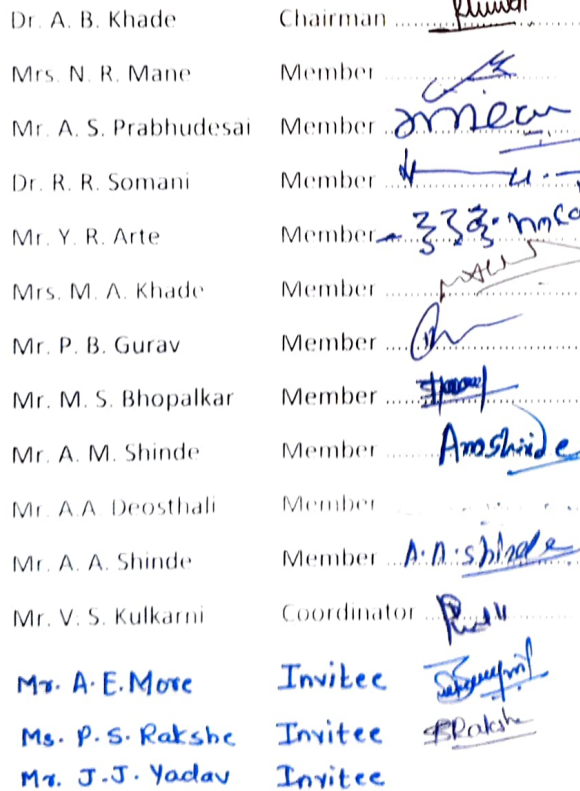 Dr. A. B. Khade Chairman
Mrs. N. R. Mane Member
Mr. A. S. Prabhudesai Member
Dr. R. R. Somani Member
Mr. Y. R. Arte Member
Mrs. M. A. Khade Member
Mr. P. B. Gurav Member
Mr. M. S. Bhopalkar Member
Mr. A. M. Shinde Member Amshinde
Mr. A.A. Deosthali Member
Mr. A. A. Shinde Member A.A.shinde
Mr. V. S. Kulkarni Coordinator
Mr. A.E.More Invitee
Ms. P.S. Rakshe Invitee
Mr. J.J. Yadav Invitee